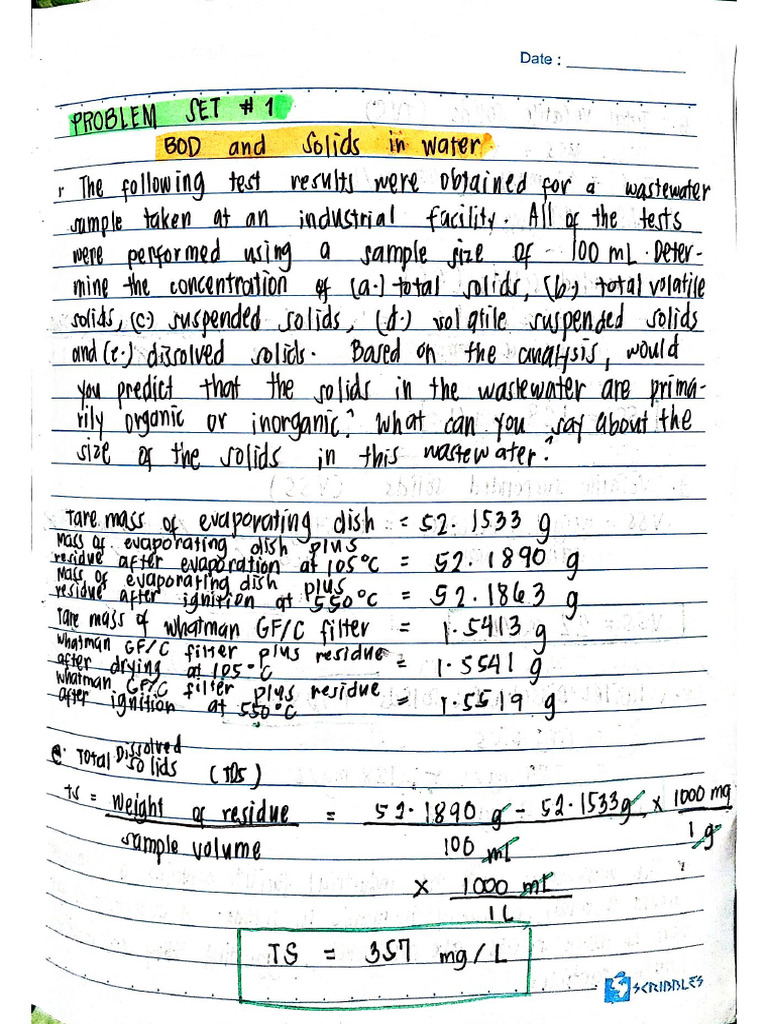 Date : ____________
PROBLEM SET # 1
BOD and Solids in water
1. The following test results were obtained for a wastewater
sample taken at an industrial facility. All of the tests
were performed using a sample size of 100 mL. Deter-
mine the concentration of (a.) total solids, (b.) total volatile
solids, (c.) suspended solids, (d.) volatile suspended solids
and (e.) dissolved solids. Based on the analysis, would
you predict that the solids in the wastewater are prima-
rily organic or inorganic? What can you say about the
size of the solids in this wastewater?
Tare mass of evaporating dish = 52.1533 g
Mass of evaporating dish plus
residue after evaporation at 105°C = 52.1890 g
Mass of evaporating dish plus
residue after ignition at 550°C = 52.1863 g
Tare mass of Whatman GF/C filter = 1.5413 g
Whatman GF/C filter plus residue
after drying at 105°C = 1.5541 g
Whatman GF/C filter plus residue
after ignition at 550°C = 1.5519 g
a. Total Dissolved
Solids (TDS)
TS = Weight of residue = 52.1890 g - 52.1533 g x 1000 mg
sample volume 100 mL 1 g
x 1000 mL
1 L
TS = 357 mg/L
SCRIBBLES